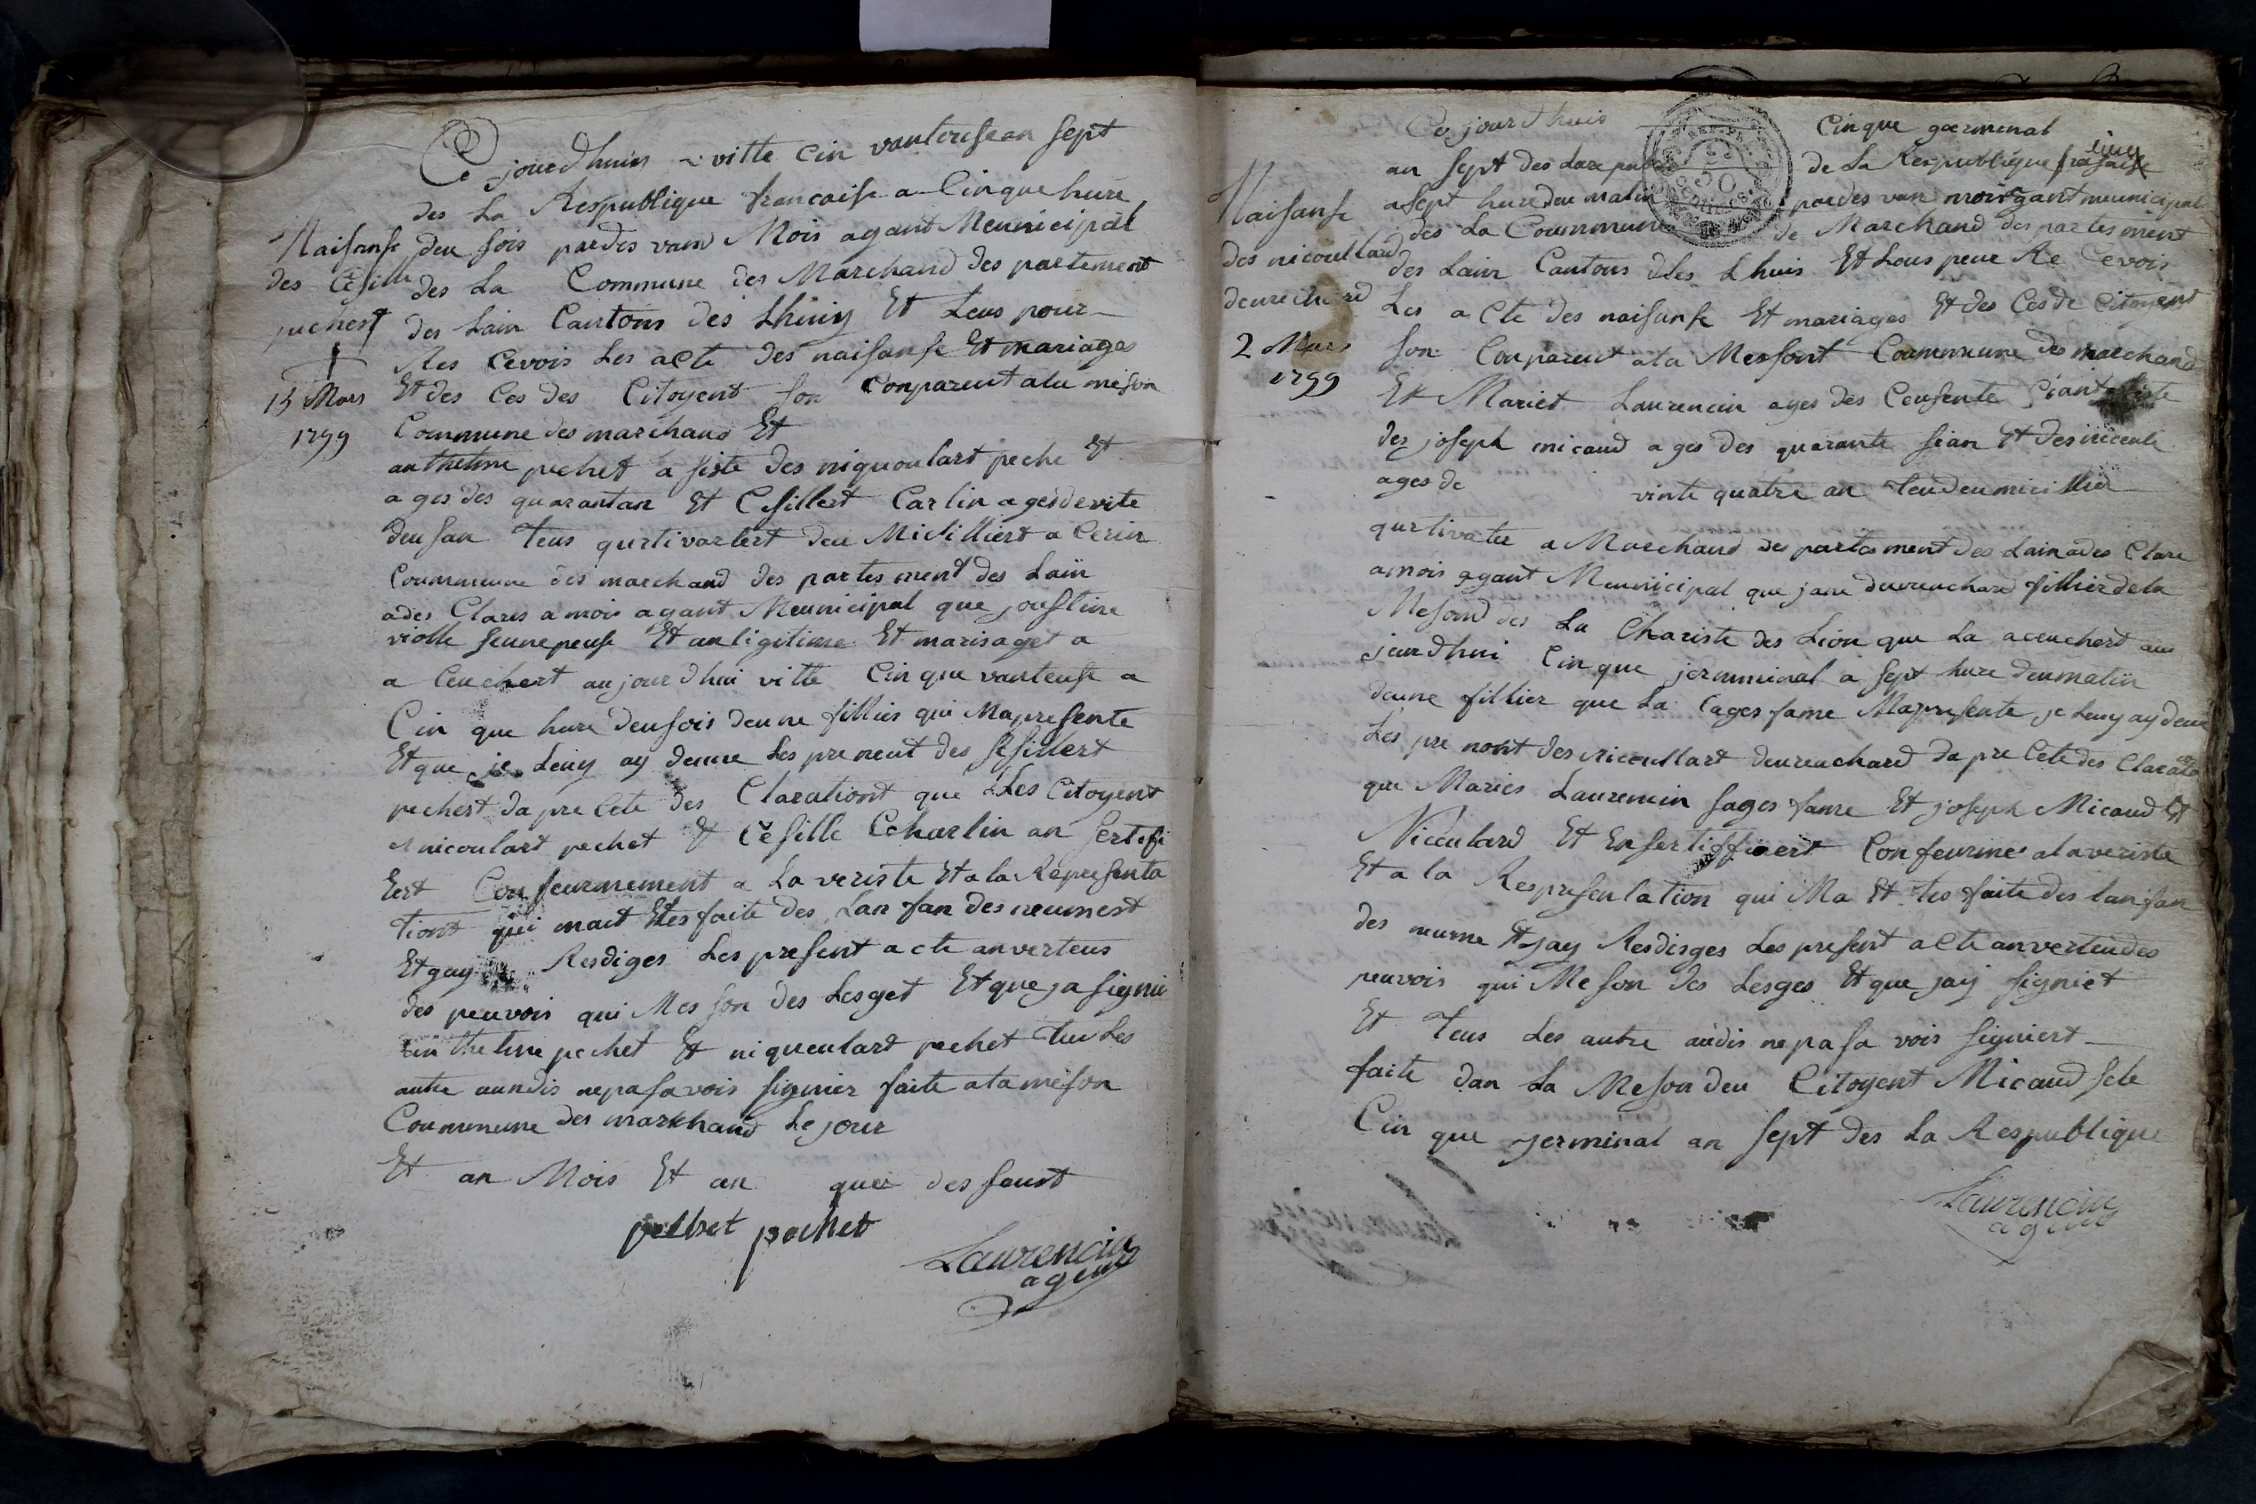 Ce jourdhuis vitte cin vantouse an sept
des La Respublique francaise a Cinque hure
Naisanse deu sois pardes vand Mois agant Meunicipal
des Cesille des La Commune des Marchand des partement
pechert des Lain Cantons des Lhuiy Et Leus pour
Res Cevois Les acte des naisanse Et mariages
15 Mars Et des Ces des Citoyent son Conparent ala meson
1799 Commune des marchand Et
anthelme pechet a siste des niquoulart peche Et
ages des quarantan Et Cesillert Carlin ages de vite
deu san Teus qurtivartert deu Micilliert a Cerin
Coummeune des marchand des partes ment des Lain
a des Clares a mois agant Meunicipal que joustine
violle seune peuse Et an ligitime Et marisaget a
a Ceuchert aujourdhui vitte Cinque vanteuse a
Cin que hure deusois deune fillies qui Mapresente
Et que je Leuy ay deune Les prenent des Sesillert
pechert dapre Cete des Claration que Les Citoyent
nicoulart pechet Et Cesille Charlin an sertifi
Eert Confeurmement a La veriste Et a la Represenfa
tiont qui mait Ettes faite des Lan fan des neumest
Et gay Resdiges Les present acte anverteus
des peuvois qui Mes son des Lesget Et que ja signie
anthelme pechet Et niqueulart pechet Tus Les
autre aundis nepasavois signier faite ala meson
Coummeune des marchand Le jour
Et an Mois Et an que desseust
pechet pochet
Laurencin
agent
Ce jourdhuis Cinque germenal
an sept des La Respublique fransaise
Naisanse a sept hure deu matin pardes van mois agant meunicipal
des nicoullard des La Coummune de Marchand des partes ment
deureuchard des Lain Cantons des Lhuis Et Lous peur Re Cevois
2 Mars Les acte des naisanse Et mariages Et des Ces de Citoyent
1799 son Conparent ala Messont Coummeune des marchand
Et Mariet Laurencin ages des Ceusente sian
des joseph micaud ages des quarante sian Et des
ages de vinte quatre an Teu deu micillier
qurtivatte a Marchand des partes ment des Lain a des Clare
a mois agant Meunicipal que jane deureuchard fillier de la
Mesond des La Chariste des Lion que La aceuchert au
jeurdhui Cinque jermminal a sept hure deumatin
deune fillier que La sages fame Mapresente je Leuy ay deune
Les pre nont des nicoullart deureuchard dapre Cete des Claration
que Maries Laurencin sages fame Et joseph Micaud Et
Nicoulard Et Ensertiffiert Confeurme alaveriste
Et a la Respresentation qui Ma Et tes faite des lanfan
des meme Et jay Resdisges Les present acte anverteu des
peuvois qui Meson des Lesges Et que jay signiet
Et Teus Les autre audis nepasa vois signiert
faite dan La Meson deu Citoyent Micaud sete
Cin que germinal an sept des La Respublique
Laurencin
agent